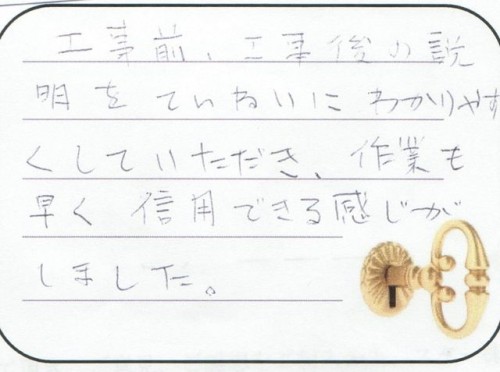 工事前、工事後の説
明をていねいにわかりやす
くしていただき、作業も
早く信用できる感じが
しました。